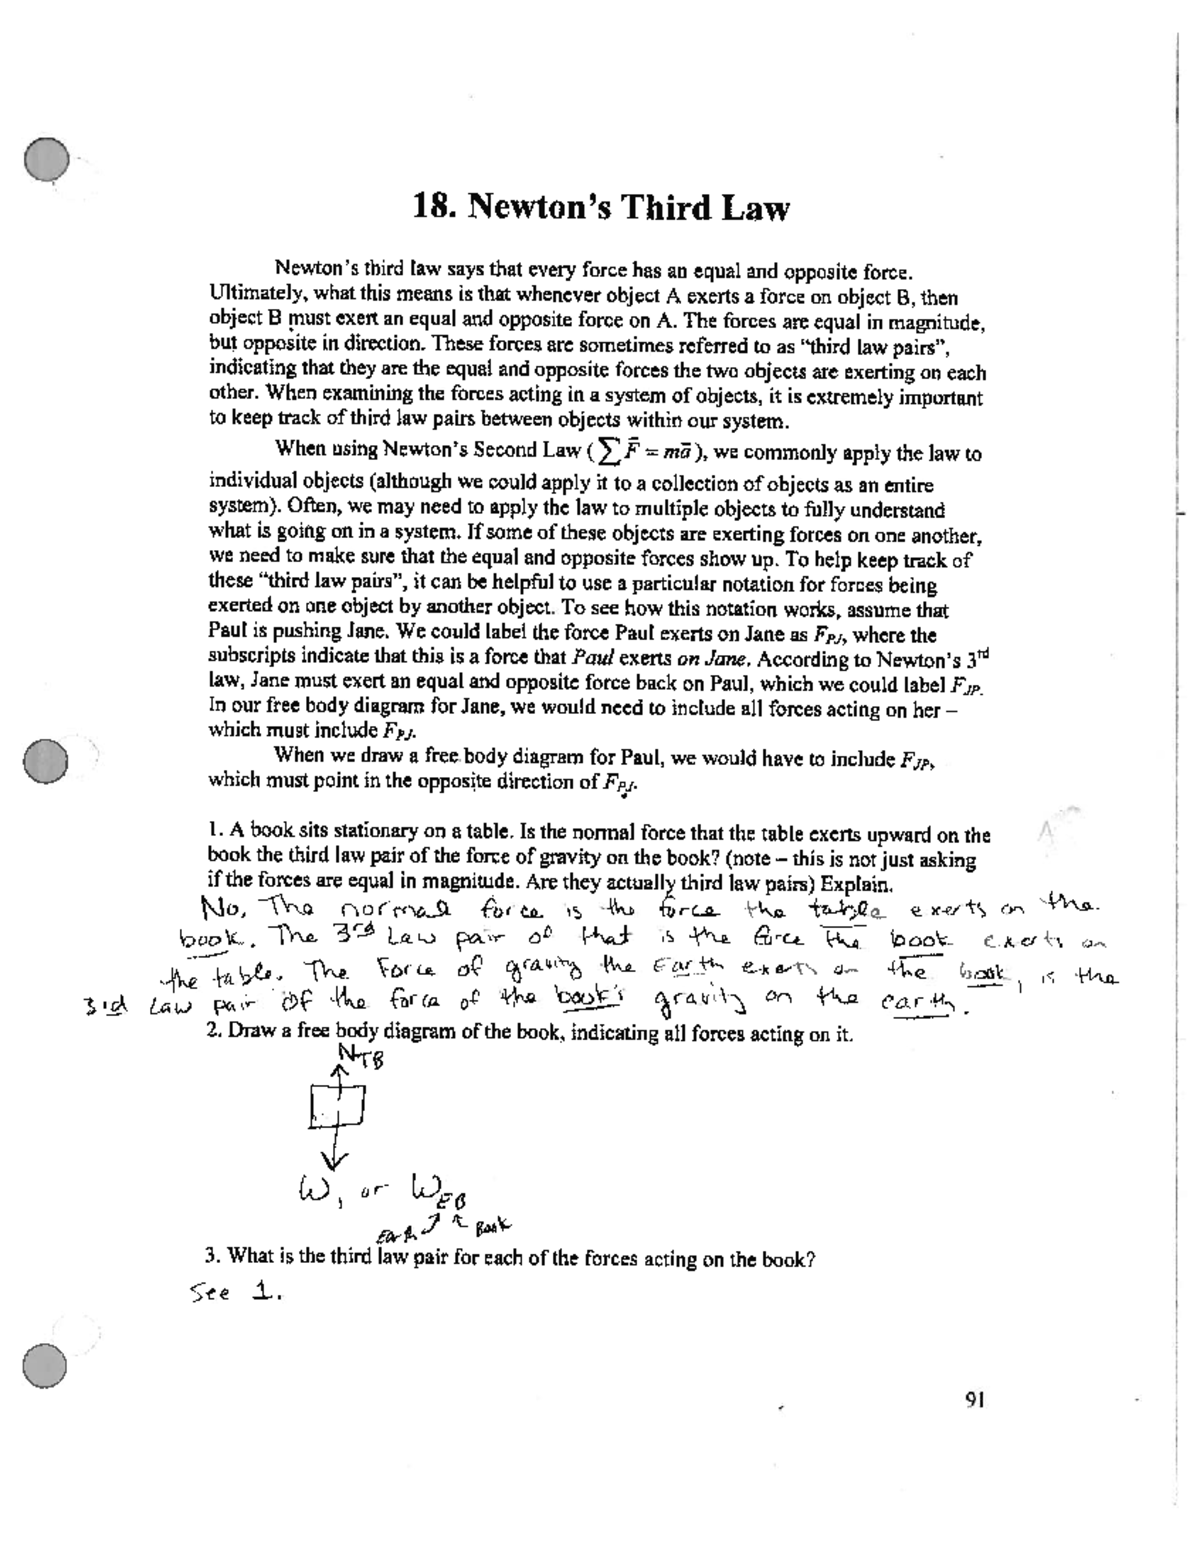 18. Newton's Third Law
Newton's third law says that every force has an equal and opposite force.
Ultimately, what this means is that whenever object A exerts a force on object B, then
object B must exert an equal and opposite force on A. The forces are equal in magnitude,
but opposite in direction. These forces are sometimes referred to as "third law pairs",
indicating that they are the equal and opposite forces the two objects are exerting on each
other. When examining the forces acting in a system of objects, it is extremely important
to keep track of third law pairs between objects within our system.
When using Newton's Second Law (∑F̄ = mā), we commonly apply the law to
individual objects (although we could apply it to a collection of objects as an entire
system). Often, we may need to apply the law to multiple objects to fully understand
what is going on in a system. If some of these objects are exerting forces on one another,
we need to make sure that the equal and opposite forces show up. To help keep track of
these "third law pairs", it can be helpful to use a particular notation for forces being
exerted on one object by another object. To see how this notation works, assume that
Paul is pushing Jane. We could label the force Paul exerts on Jane as F_PJ, where the
subscripts indicate that this is a force that Paul exerts on Jane. According to Newton's 3rd
law, Jane must exert an equal and opposite force back on Paul, which we could label F_JP.
In our free body diagram for Jane, we would need to include all forces acting on her –
which must include F_PJ.
When we draw a free body diagram for Paul, we would have to include F_JP,
which must point in the opposite direction of F_PJ.
1. A book sits stationary on a table. Is the normal force that the table exerts upward on the
book the third law pair of the force of gravity on the book? (note – this is not just asking
if the forces are equal in magnitude. Are they actually third law pairs) Explain.
No, The normal force is the force the table exerts on the.
book. The 3rd Law pair of that is the force the book exerts on
the table. The Force of gravity the Earth exerts on the book, is the
3rd Law pair of the force of the book's gravity on the earth.
2. Draw a free body diagram of the book, indicating all forces acting on it.
N_TB
W, or W_EB
Earth Book
3. What is the third law pair for each of the forces acting on the book?
See 1.
91